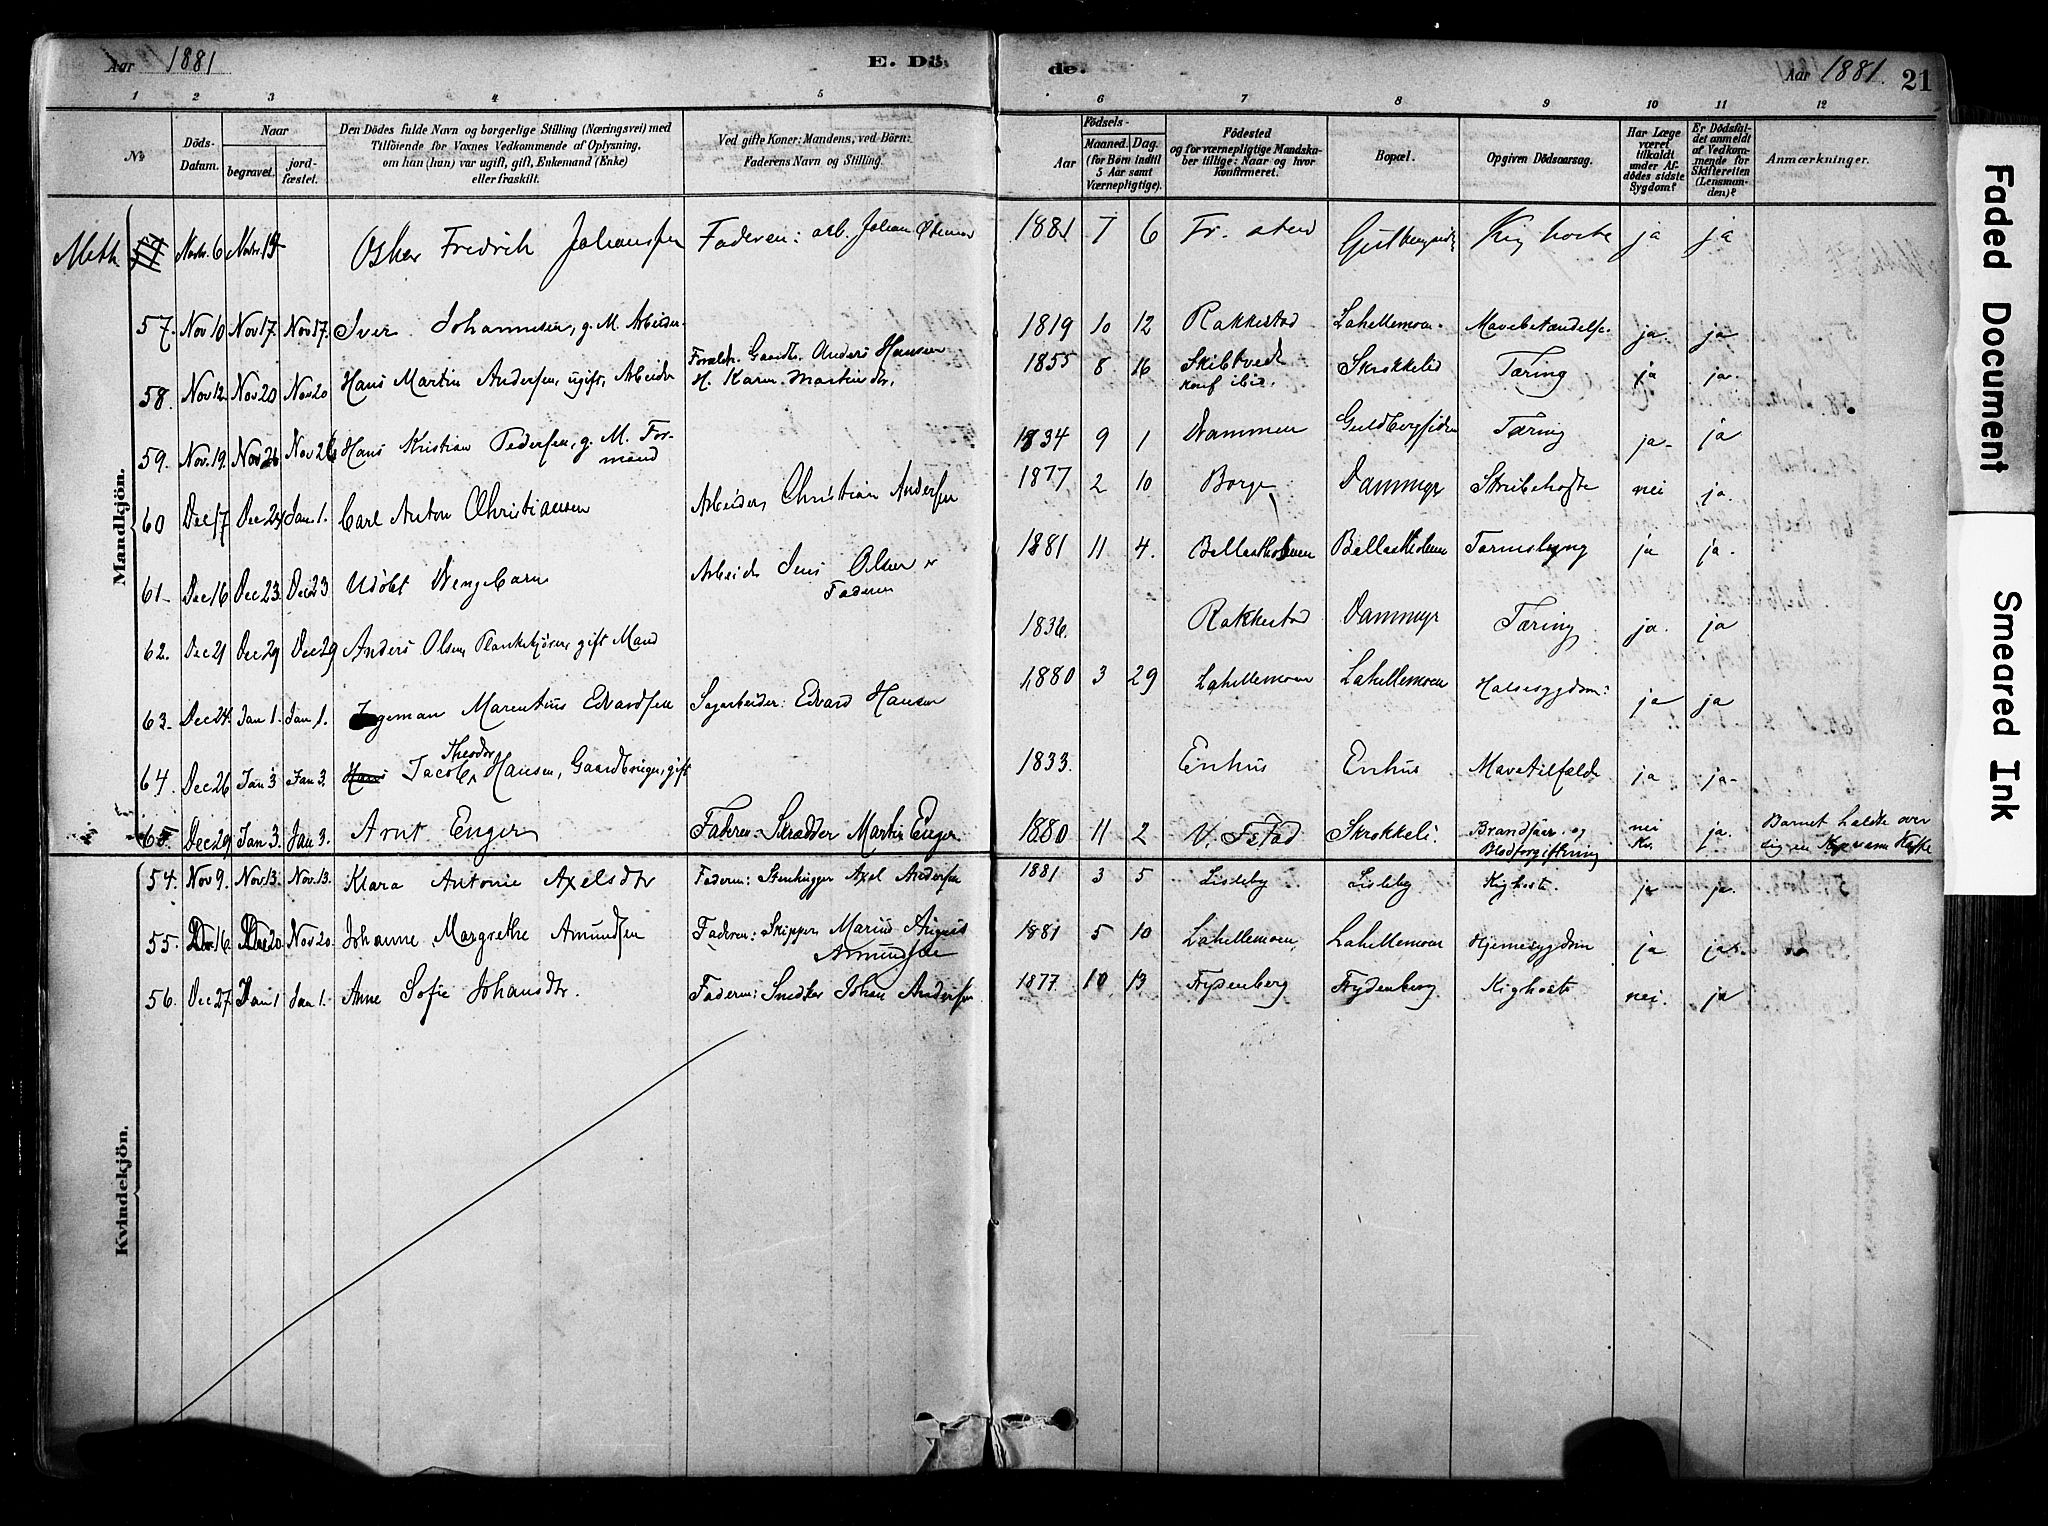 Aar 1881
E. Dö
de.
Aar 1881. 21
1 2 3 4 5 6 7 8 9 10 11 12
No
Döds-Datum.
Naar
begravet.
jord-fæstet.
Den Dödes fulde Navn og borgerlige Stilling (Næringsvei) med
Tilföiende for Voxnes Vedkommende af Oplysning,
om han (hun) var ugift, gift, Enkemand (Enke)
eller fraskilt.
Ved gifte Koner: Mandens, ved Börn:
Faderens Navn og Stilling.
Födsels-
Aar
Maaned. Dag.
(for Börn indtil
5 Aar samt
Værnepligtige).
Födested
og for værnepligtige Mandska-
ber tillige: Naar og hvor
konfirmeret.
Bopæl.
Opgiven Dödsaarsag.
Har Læge
været
tilkaldt
under Af-
dödes sidste
Sygdom?
Er Dödsfal-
det anmeldt
af Vedkom-
mende for
Skifteretten
(Lensman-
den)?
Anmærkninger.
Mandkjön.
Meth Novbr. 6 Novbr. 15 Oskar Fredrik Johansen Faderen: arb. Johan 1881 7 6 Fr. sted ja ja
57. Nov 10 Nov 17. Nov 17. Iver Johannesen, g. M. Arbeider 1819 10 12 Rakkestad Lahellemoen. Mavebetændelse. ja. ja
58. Nov 12. Nov 20 Nov 20 Hans Martin Andersen, ugift, Arbeider Foræld. Gaardb. Anders Hansen
H. Karen Martinsdtr. 1855 8 16 Skibtvedt
konf ibid. Skrokkelid Tæring ja ja.
59. Nov. 19. Nov 26 Nov 26 Hans Kristian Pedersen, g. M. For-
mand 1834 9 1 Dammen Guldbergsiden Tæring ja- ja
60 Dec 17 Dec 24 Jan 1. Carl Anton Christiansen Arbeider, Christian Andersen 1877 2 10 Borge Dammyr Strubehoste nei ja.
61- Dec 16 Dec 23 Dec 23 Udöbt Drengebarn Arbeider Jens Olsen
Faderen 1881 11 4. Ballastholmen Ballastholmen ja ja.
62. Dec 21 Dec 29 Dec 29 Anders Olsen Plankekjörer, gift Mand 1836. Rakkestad Dammyr Tæring ja. ja
63. Dec 24. Jan 1. Jan 1. Ingeman Marentius Edvardsen Sagarbeider: Edvard Hansen 1880 3 29 Lahellemoen Lahellemoen Halssygdom: ja ja
64. Dec 26 Jan 3 Jan 3. Hans Jacob Theodor Hansen, Gaardbruger, gift 1833. Enhus Enhus Mavetilfælde ja ja-
65. Dec 29 Jan 3. Jan 3. Arnt Enger Faderen: Skrædder Martin Enger 1880 11 2 V. Fstad Skrokkeli. Brandsaar og
Blodforgiftning nei ja. Barnet hældte over
sig en Kop varm Kaffe
Kvindekjön.
54. Nov 9. Nov. 13. Nov. 13. Klara Antonie Axelsdtr Faderen: Stenhugger Axel Andersen 1881 3 5 Lisleby Lisleby. Kighoste. ja ja.
55. Nov 16 20. Nov 20. Johanne Margrethe Amundsen Faderen: Skipper Marius August
Amundsen 1881 5 10 Lahellemoen, Lahellemoen Hjernesygdom ja ja.
56. Dec 27. Jan 1 Jan 1. Anne Sofie Johansdtr. Faderen: Snedker Johan Andersen 1877 10 13 Frydenberg Frydenberg Kighoste nei. ja
Faded Document
Smeared Ink